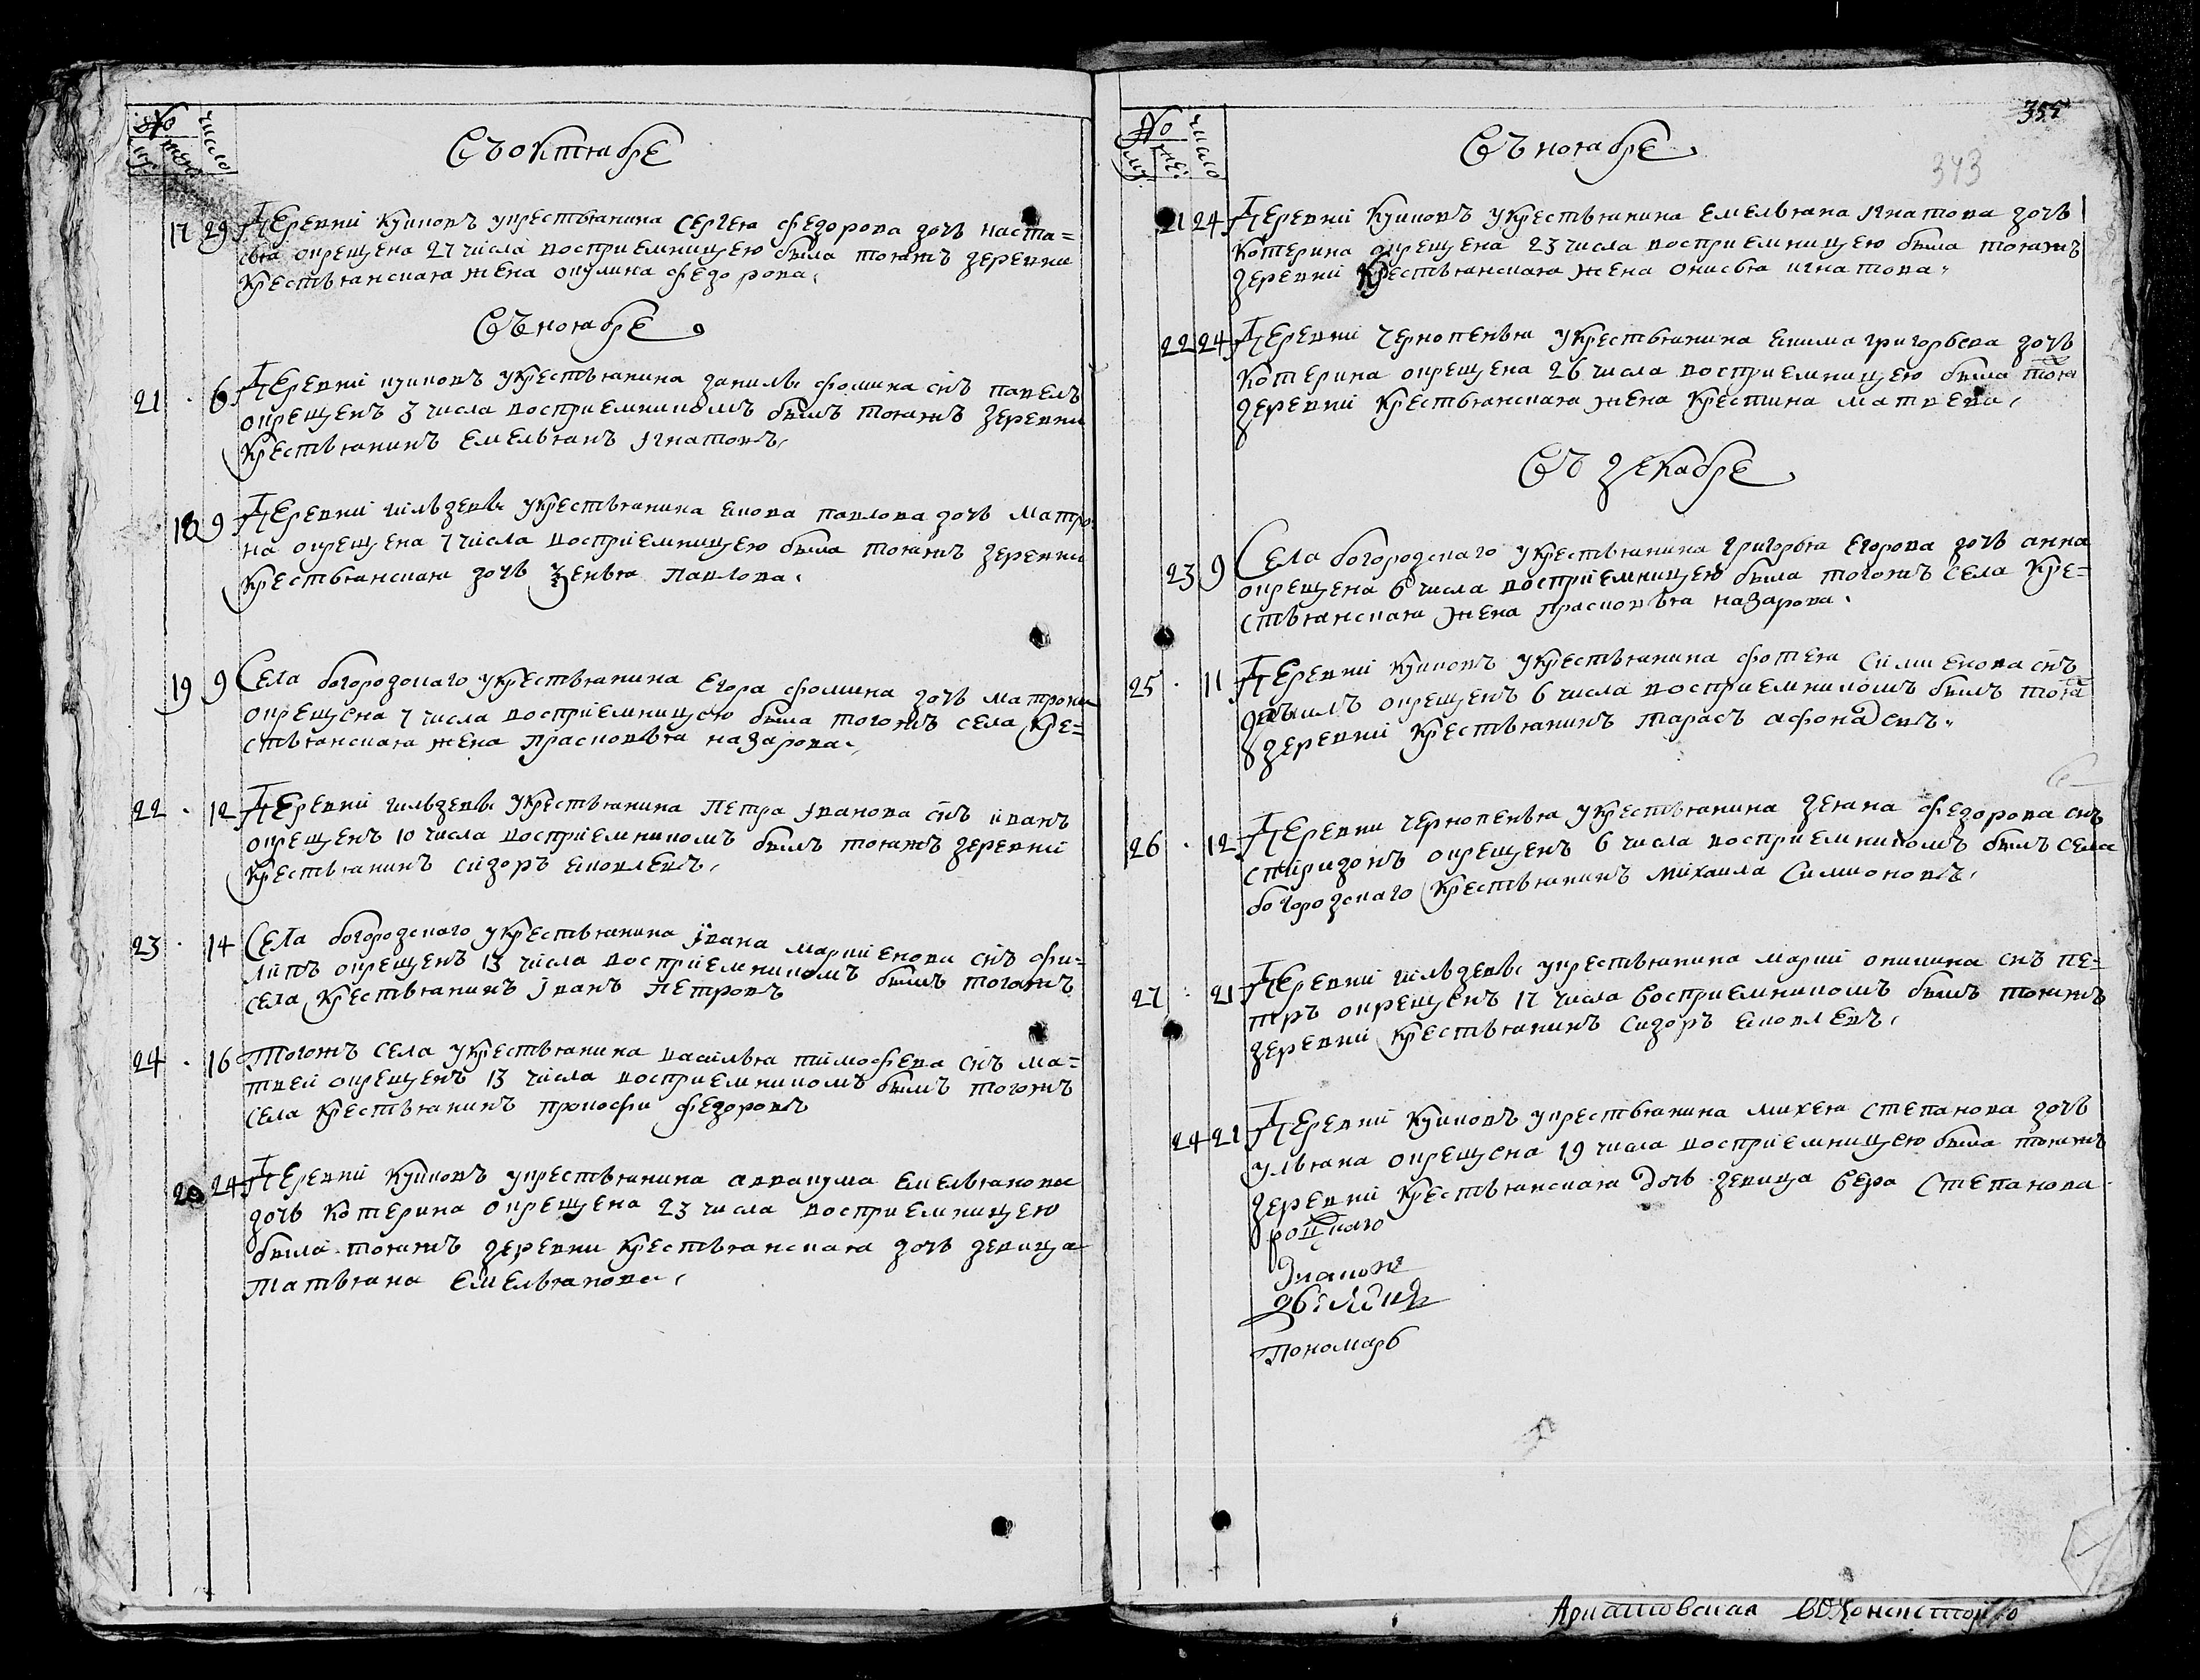 № число
му: жен:
Въ октябре
17 29 Деревни Куликовъ у крестьянина Сергея Федорова дочь Наста=
сья окрещена 27 числа восприемницею была тояжъ деревни
крестьянская жена Окулина Федорова.
Въ ноябре
21 · 6 Деревни Куликовъ у крестьянина Данилы Фомина снъ Павелъ
окрещенъ 3 числа восприемникомъ былъ тояжъ деревни
крестьянинъ Емельянъ Игнатовъ,
18 9 Деревни у крестьянина Якова Павлова дочь Матро
на окрещена 7 числа восприемницею была тояжъ деревни
крестьянская дочь Павлова.
19 9 Села Богородского у крестьянина Егора Фомина дочь Матрона
окрещена 7 числа восприемницею была тогожъ села кре=
стьянская жена Прасковья Назарова.
22 · 12 Деревни у крестьянина Петра Иванова снъ Иванъ
окрещенъ 10 числа восприемникомъ былъ тояжъ деревни
крестьянинъ Сидоръ Яковлевъ,
23 · 14 Села Богородского у крестьянина Ивана снъ Фи=
липъ окрещенъ 13 числа восприемникомъ былъ тогожъ
села крестьянинъ Иванъ Петровъ
24 · 16 Тогожъ села у крестьянина Василья Тимофева снъ Ма=
твей окрещенъ 13 числа восприемникомъ былъ тогожъ
села крестьянинъ Прокофи Федоровъ
20 24 Деревни Куликовъ у крестьянина Аввакума Емельянова
дочь Котерина окрещена 23 числа восприемницею
была тояжъ деревни крестьянская дочь девица
Татьяна Емельянова,
355
343
№ число
му: же:
Въ ноябре
21 24 Деревни Куликовъ у крестьянина Емельяна Игнатова дочь
Котерина окрещена 23 числа восприемницею была тояжъ
деревни крестьянская жена Онисья Игнатова.
22 24 Деревни Чернопенья у крестьянина Екима Григорьева дочь
Котерина окрещена 26 числа восприемницею была тояж
деревни крестьянская жена Крестина Матвева,
Въ декабре
23 9 Села Богородского у крестьянина Григорья Егорова дочь Анна
окрещена 6 числа восприемницею была тогожъ села кре=
стьянская жена Прасковья Назарова.
25 · 11 Деревни Куликовъ у крестьянина Фотея снъ
окрещенъ 6 числа восприемникомъ былъ тояж
деревни крестьянинъ Тарасъ Афонасевъ.
26 · 12 Деревни Чернопенья у крестьянина Деяна Федорова снъ
Спиридонъ окрещенъ 6 числа восприемникомъ былъ села
Богородского крестьянинъ Михаила Симионовъ,
27 · 21 Деревни у крестьянина снъ Пе=
тръ окрещенъ 17 числа восприемникомъ былъ тояжъ
деревни крестьянинъ Сидоръ Яковлевъ,
24 21 Деревни Куликовъ у крестьянина Михея Степанова дочь
Ульяна окрещена 19 числа восприемницею была тояжъ
деревни крестьянская дочь девица Вера Степанова
Пономарь